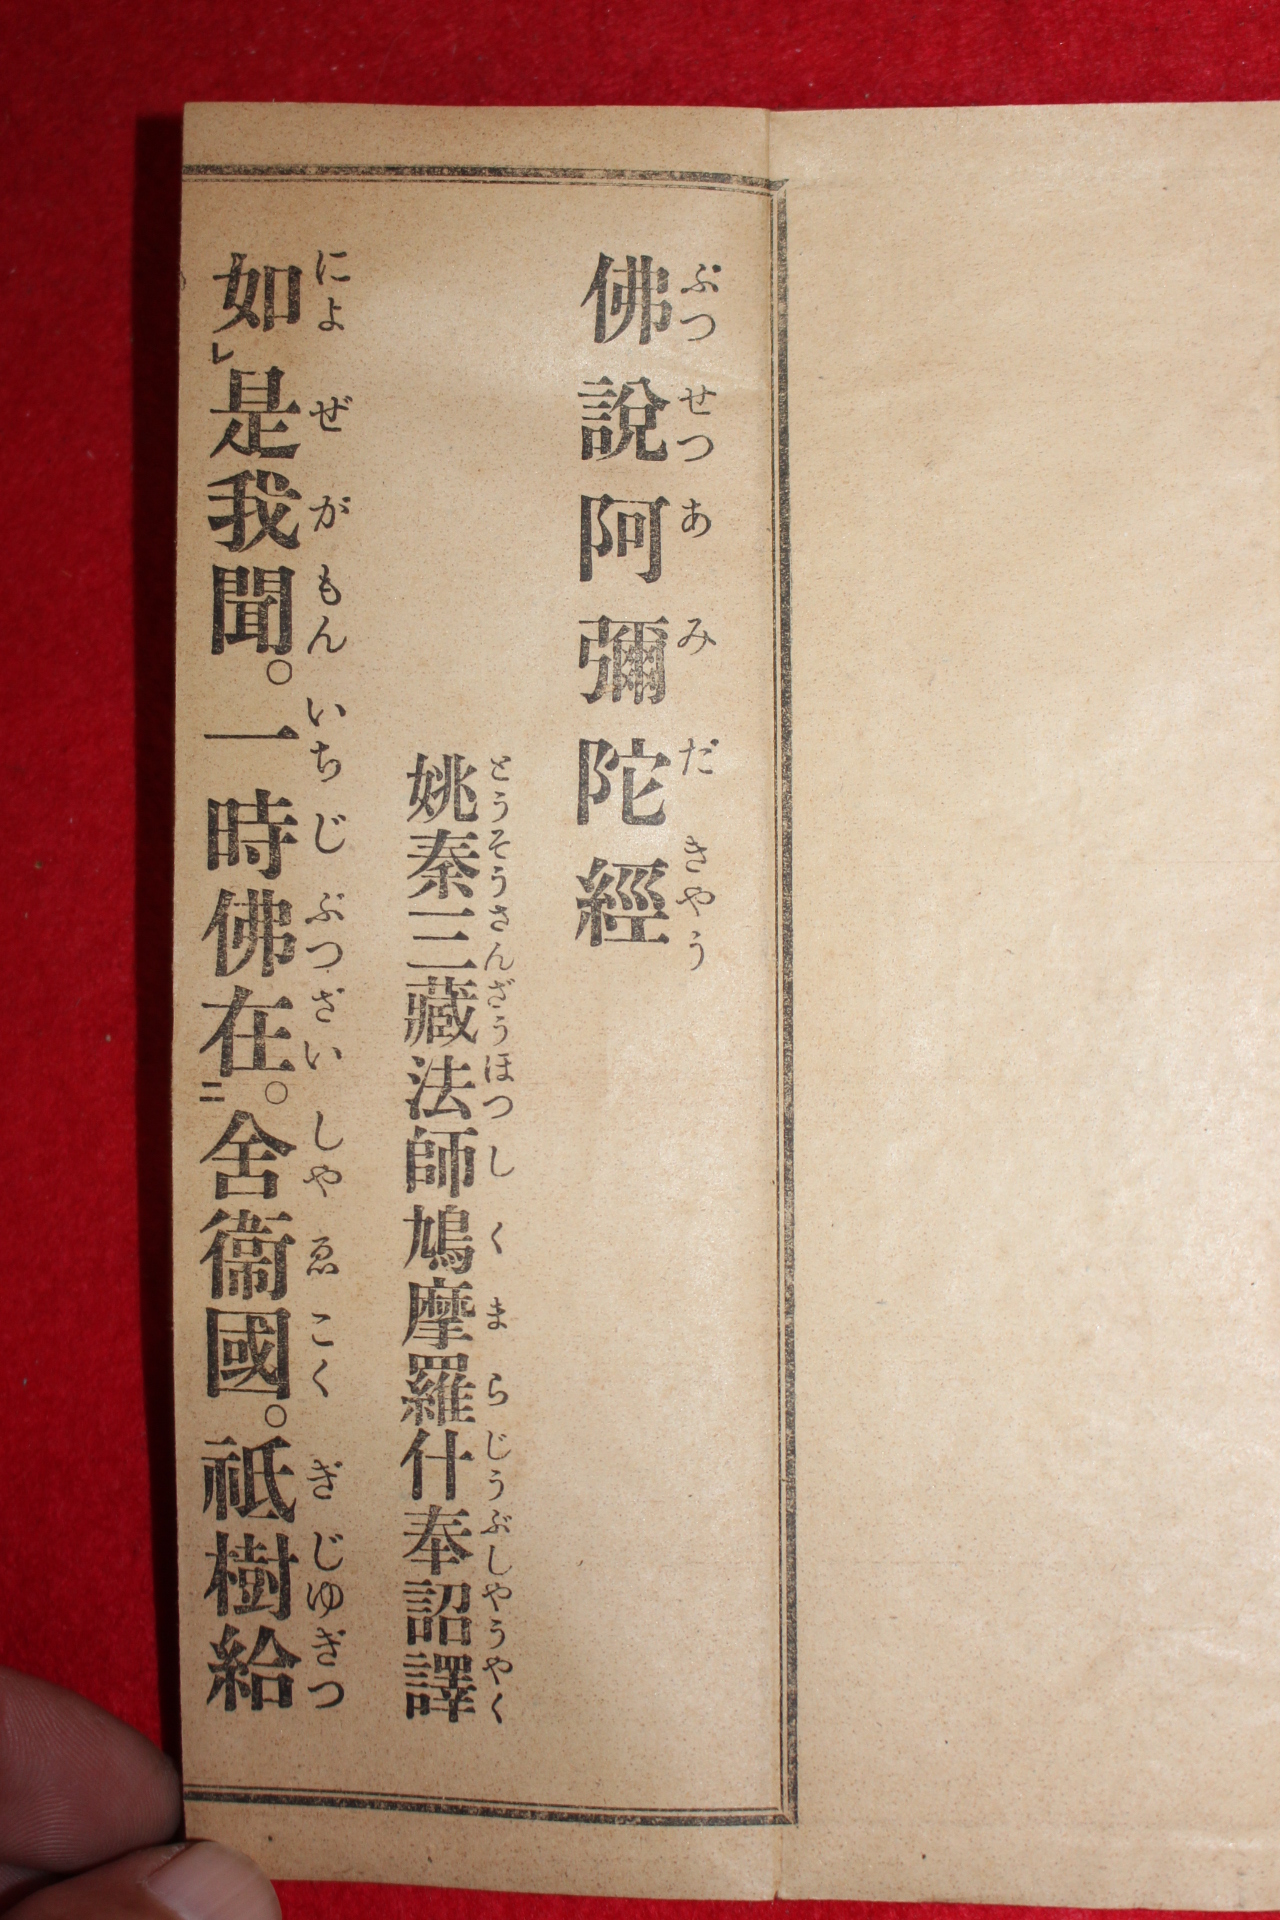 佛說阿彌陀經
ぶつせつあみだきやう
姚秦三藏法師鳩摩羅什奉詔譯
とうそうさんざうほつしくまらじうぶしやうやく
如㆑是我聞。一時佛在。㆓舍衞國。祇樹給
によぜがもんいちじぶつざいしやゑこくぎじゆぎつ